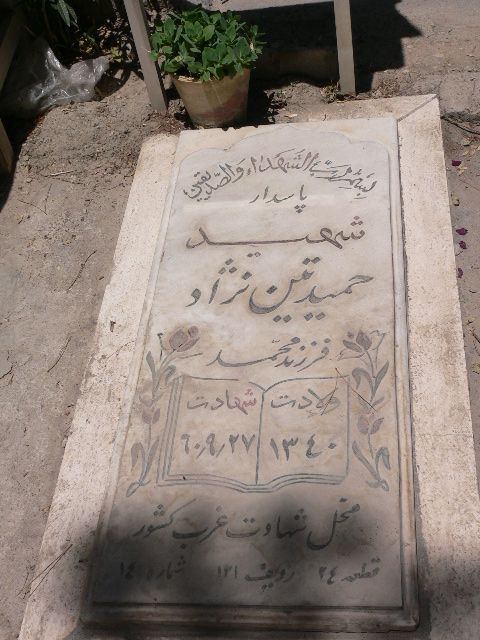 بسم رب الشهداء والصدیقین
پاسدار
شهید
حمید متین نژاد
فرزند محمد
ولادت شهادت
۱۳۴۰ ۶۰٫۹٫۲۷
محل شهادت غرب کشور
قطعه ۲۴ ردیف ۱۲۱ شماره ۱۴